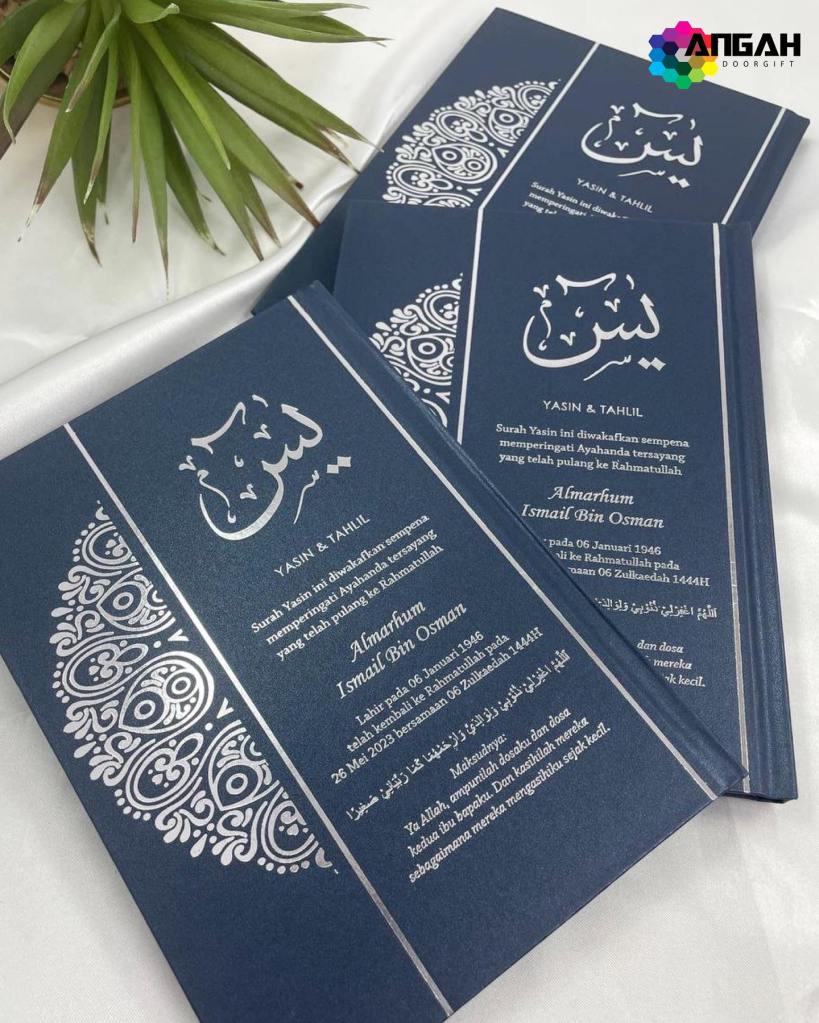 ANGAH
DOORGIFT
يس
YASIN & TAHLIL
Surah Yasin ini diwakafkan
memperingati
yang telah
يس
YASIN & TAHLIL
Surah Yasin ini diwakafkan sempena
memperingati Ayahanda tersayang
yang telah pulang ke Rahmatullah
Almarhum
Ismail Bin Osman
pada 06 Januari 1946
ke Rahmatullah pada
06 Zulkaedah 1444H
اللَّهُمَّ اغْفِرْلِيْ ذُنُوْبِيْ
dan dosa
mereka
kecil.
يس
YASIN & TAHLIL
Surah Yasin ini diwakafkan sempena
memperingati Ayahanda tersayang
yang telah pulang ke Rahmatullah
Almarhum
Ismail Bin Osman
Lahir pada 06 Januari 1946
telah kembali ke Rahmatullah pada
26 Mei 2023 bersamaan 06 Zulkaedah 1444H
اللَّهُمَّ اغْفِرْلِيْ ذُنُوْبِيْ وَلِوَالِدَيَّ وَارْحَمْهُمَا كَمَا رَبَّيَانِيْ صَغِيْرًا
Maksudnya:
Ya Allah, ampunilah dosaku dan dosa
kedua ibu bapaku. Dan kasihilah mereka
sebagaimana mereka mengasihiku sejak kecil.